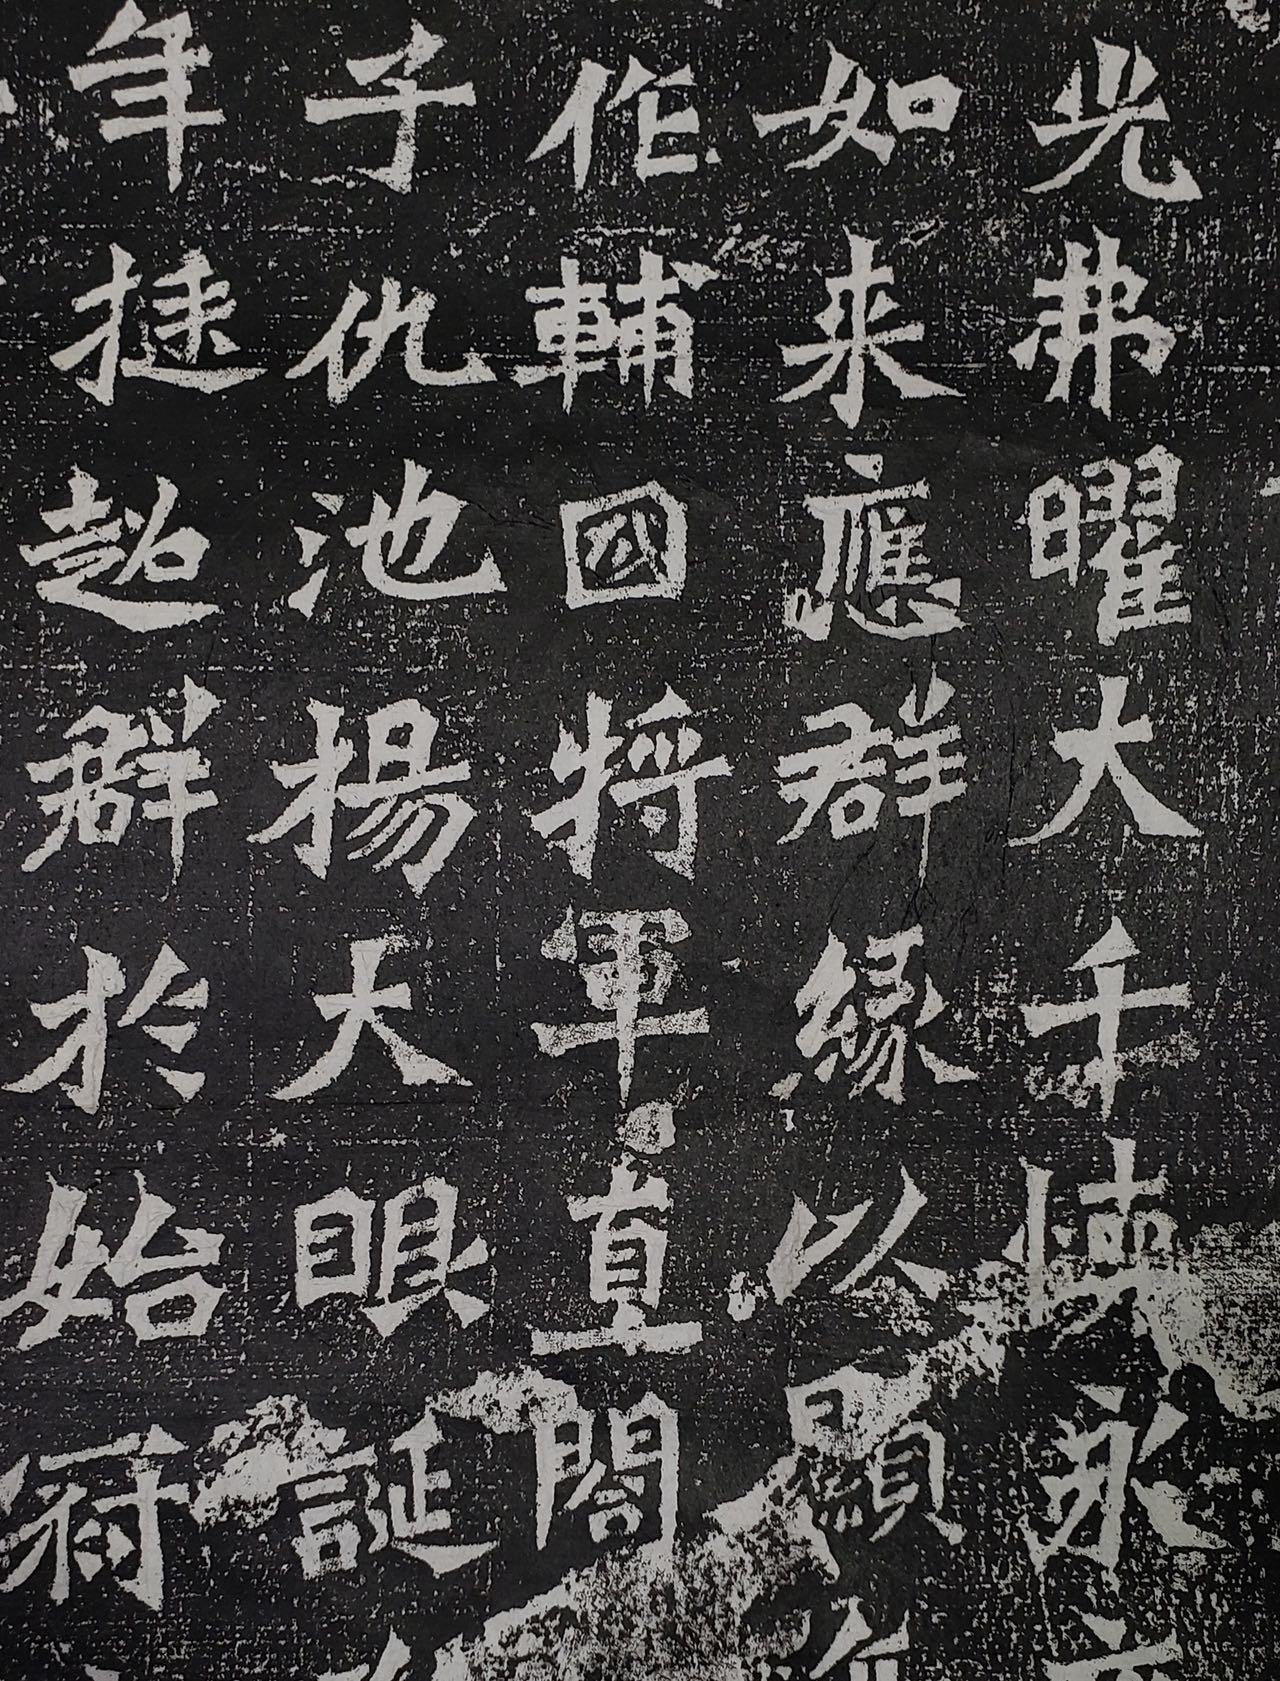 光弗曜大千懷永
如来應群縁以顯
作輔國將軍直閤
子仇池楊大眼誕
年挺超群於始冠